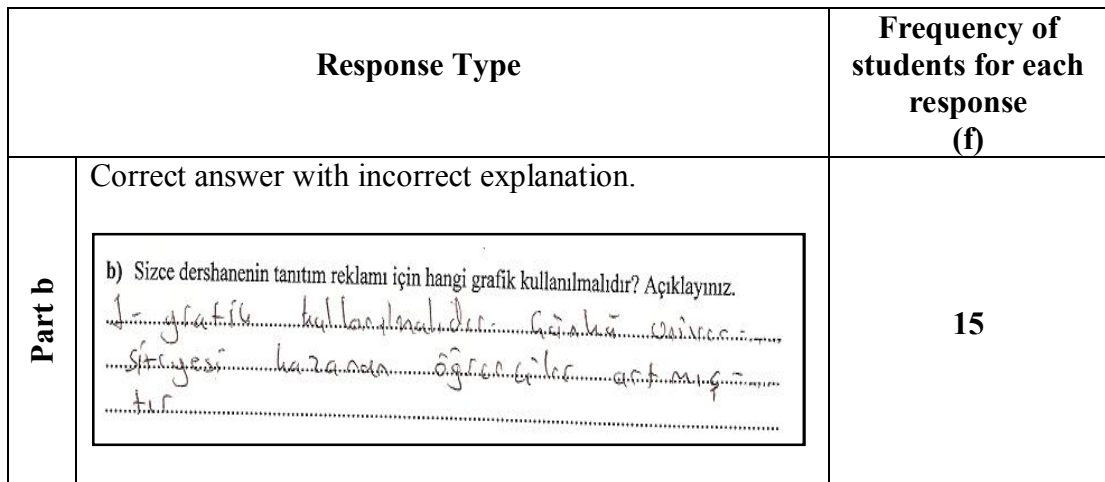 Response Type
Frequency of
students for each
response
(f)
Part b
Correct answer with incorrect explanation.
b) Sizce dershanenin tanıtım reklamı için hangi grafik kullanılmalıdır? Açıklayınız.
1- grafik kullanılmalıdır. Çünkü üniver-
sitiyesi kazanan öğrençiler artmış-
tır
15